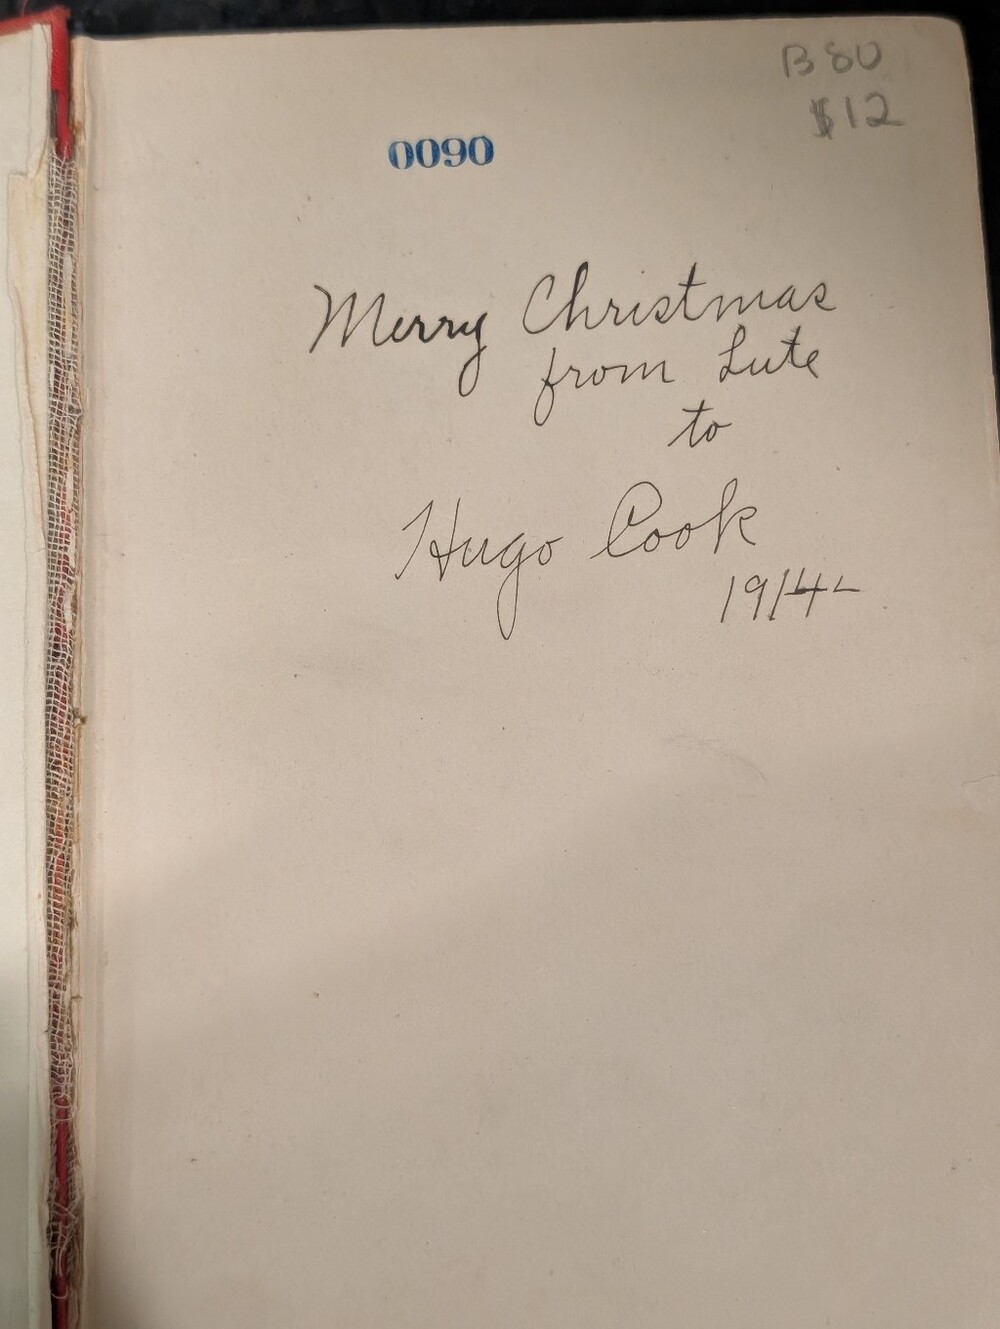 B80
$12
0090
Merry Christmas
from Lute
to
Hugo Cook
1914